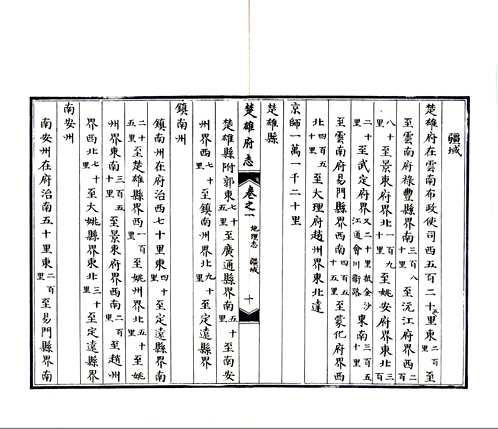 疆域
楚雄府在雲南布政使司西五百二十里東二百十里至
至雲南府祿豐縣界南三百八十里至沅江府界西二
八十里至景東府界北一百九十里至姚安府界東北三百
二十里至武定府界又二十里抵金沙江通會川衛路東南三百五十里
至雲南府易門縣界西南四百五十里至蒙化府界西
北四百五十里至大理府趙州界東北達
京師一萬一千二十里
楚雄縣
楚雄府志 卷之一 地理志 疆域 十
楚雄縣附郭東七十里至廣通縣界南五十里至南安
州界西七十里至鎮南州界北九十里至定遠縣界
鎮南州
鎮南州在府治西七十里東四十里至楚雄縣界南
二十五里至楚雄縣界西一百里至姚州界北五十里至姚
州界東南三百五十里至景東府界西南二百里至趙州
界西北七十里至大姚縣界東北三十里至定遠縣界
南安州
南安州在府治南五十里東二百里至易門縣界南